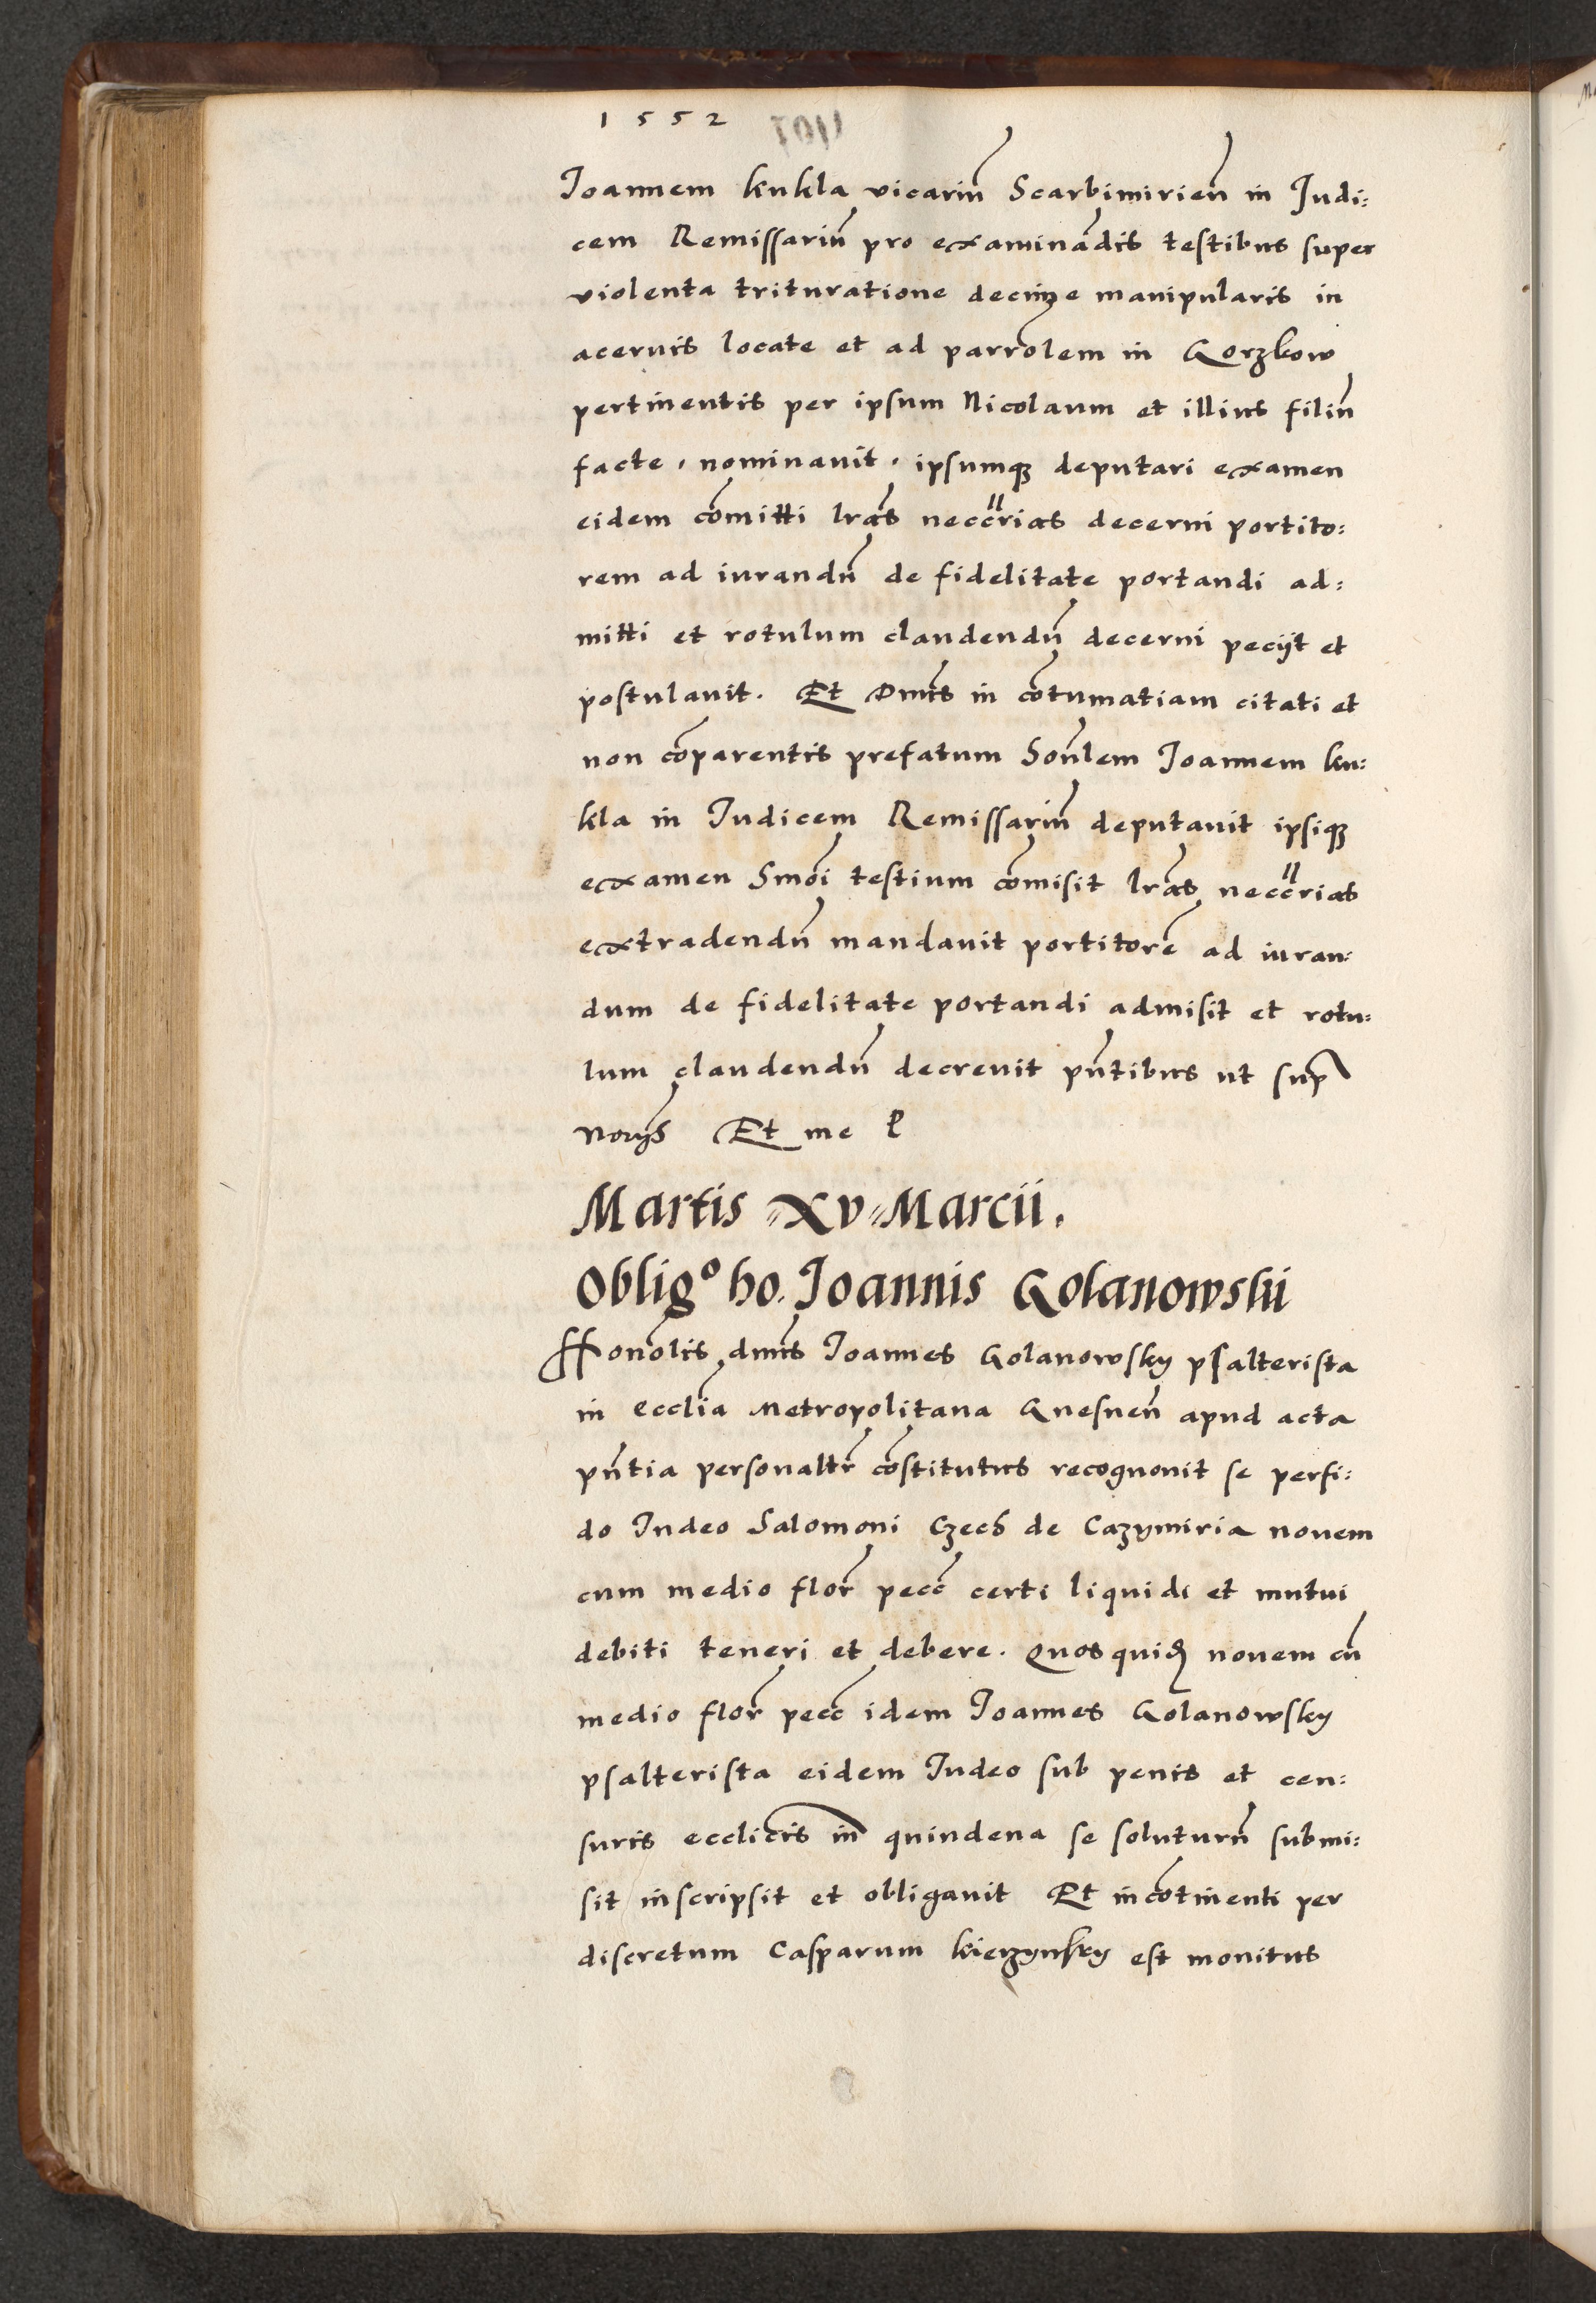 1552
Joannem kukla vicariū Scarbimirieñ in Judi:
cem Remissariū pro examinādis testibus super
violenta trituratione decime manipularis in
acervis locate et ad parrōlem in Gorzkow
pertinentis per ipsum Nicolaum et illius filiū
facte, nominavit, ipsumq deputari examen
eidem cōmitti lrās neccrias decerni portito:
rem ad iurandū de fidelitate portandi ad:
mitti et rotulum claudendū decerni peciit et
postulavit. Et Dnūs in cōtumatiam citati et
non cōparentis prefatum honlem Joannem ku:
kla in Judicem Remissariū deputavit ipsiq
examen hmōi testium cōmisit lrās neccrias
extradendū mandavit portitorē ad iuran:
dum de fidelitate portandi admisit et rotu:
lum claudendū decrevit pn̄tibus ut sup
norijs Et me
Martis XV Marcii.
Oblig° ho. Joannis Golanowskii
Honōlis dnūs Joannes Golanowsky psalterista
in ecclīa Metropolitana Gnesneñ apud acta
pn̄tia personaltr̄ cōstitutus recognovit se perfi:
do Judeo Salomoni Czech de Cazymiria novem
cum medio flor̄ pecc̄ certi liquidi et mutui
debiti teneri et debere. Quos quid novem cū
medio flor̄ pecc̄ idem Joannes Golanowsky
psalterista eidem Judeo sub penis et cen:
suris ecclicis in quindena se soluturū submi:
sit inscripsit et obligavit Et incōtinenti per
discretum Casparum est monitus